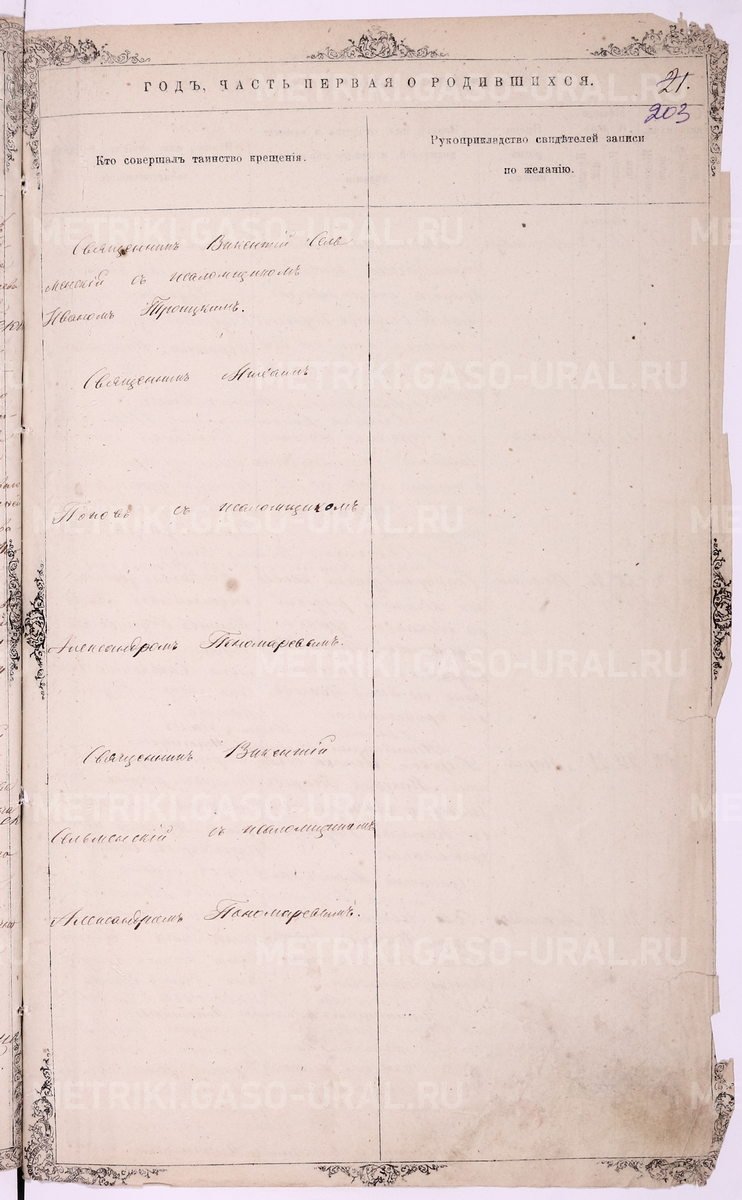 ГОДЪ, ЧАСТЬ ПЕРВАЯ О РОДИВШИХСЯ.
21.
203
Кто совершалъ таинство крещенія.
Рукоприкладство свидѣтелей записи
по желанію.
Священникъ Викентій Сель
менскій съ псаломщикомъ
Иваномъ Троицкимъ.
Священникъ Михаилъ
Поповъ съ псаломщикомъ
Александромъ Пономаревымъ.
Священникъ Викентій
Сельменскій съ псаломщикомъ
Александромъ Пономаревымъ.
METRIKI.GASO-URAL.RU